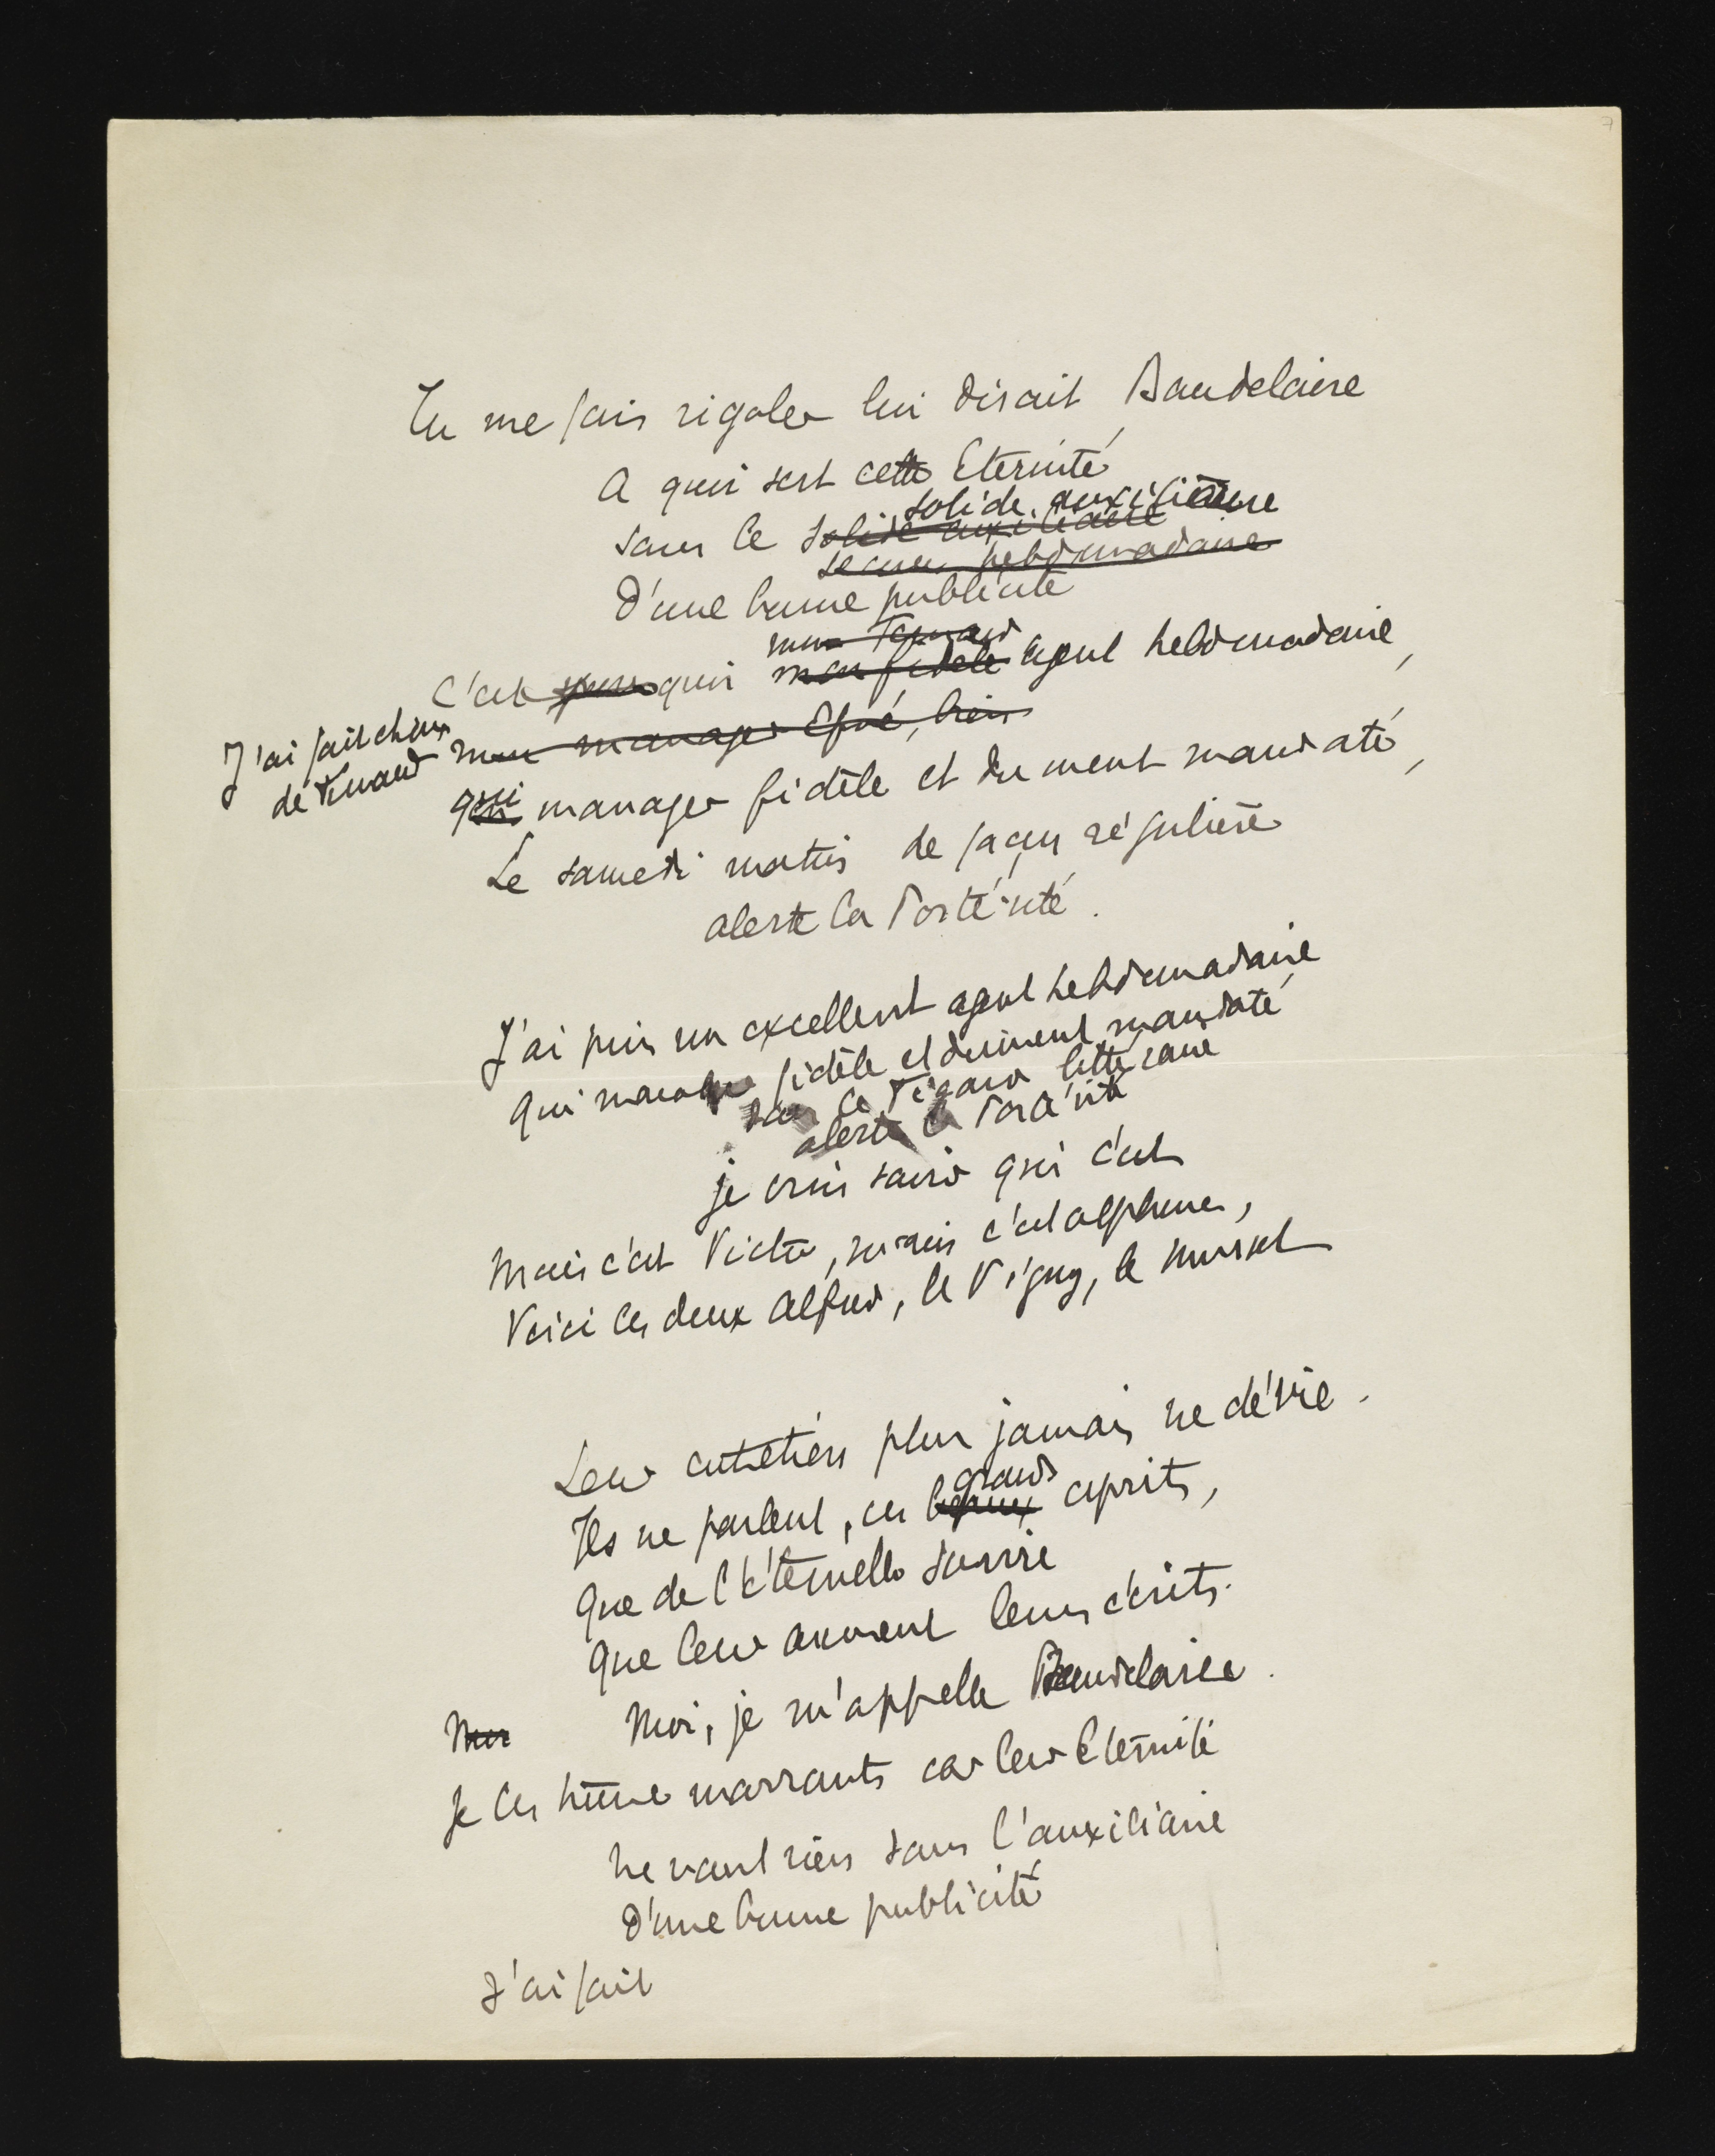 Tu me fais rigoler lui disait Baudelaire
A quoi sert cette Eternité
solide auxiliaire
sans le solide auxiliaire
secours hebdomadaire
D'une bonne publicité
mon Fernand
C'est pourquoi mon fidèle agent hebdomadaire,
J'ai fait choix
de Fernand
mon manager
qui manager fidèle et dument mandaté,
Le samedi matin de façon régulière
alerte la Postérité.
J'ai pris un excellent agent hebdomadaire
Qui manager fidèle et dument mandaté
dans le Figaro littéraire
alerte la Postérité
je crois savoir qui c'est
Mais c'est Victor, mais c'est Alphonse,
Voici les deux Alfred, le Vigny, le Musset
Leur entretien plus jamais ne dévie.
grands
Ils ne parlent, ces beaux esprits,
Que de l'éternelle survie
Que leur assurent leurs écrits.
Moi Moi, je m'appelle Baudelaire.
Je les trouve marrants car leur Eternité
Ne vaut rien sans l'auxiliaire
D'une bonne publicité
J'ai fait